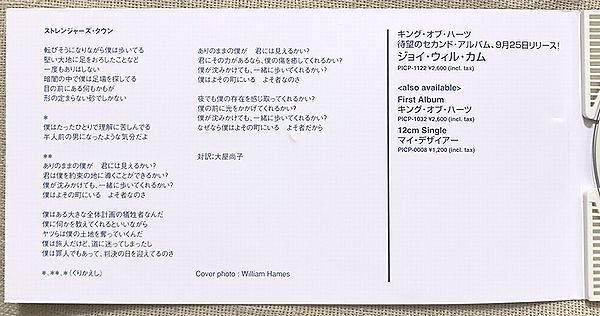 ストレンジャーズ・タウン
転びそうになりながら僕は歩いてる
堅い大地に足をおろしたことなど
一度もありはしない
暗闇の中で僕は足場を探してる
目の前にある何もかもが
形の定まらない砂でしかない
*
僕はたったひとりで理解に苦しんでる
半人前の男になったような気分だよ
**
ありのままの僕が 君には見えるかい?
君は僕を約束の地に導くことができるかい?
僕が沈みかけても、一緒に歩いてくれるかい?
僕はよその町にいる よそ者なのさ
僕はある大きな全体計画の犠牲者なんだ
僕に何かを教えてくれるといいながら
ヤツらは僕の土地を奪っていくんだ
僕は旅人だけど、道に迷ってしまったし
僕は罪人でもあって、判決の日を迎えてるのさ
*、**、*(くりかえし)
ありのままの僕が 君には見えるかい?
君にその力があるなら、僕の傷を癒してくれるかい?
僕が沈みかけても、一緒に歩いてくれるかい?
僕はよその町にいる よそ者なのさ
夜でも僕の存在を感じ取ってくれるかい?
僕の前に光をかかげてくれるかい?
僕が沈みかけても、一緒に歩いてくれるかい?
なぜなら僕はよその町にいる よそ者だから
対訳:大屋尚子
Cover photo : William Hames
キング・オブ・ハーツ
待望のセカンド・アルバム、9月25日リリース!
ジョイ・ウィル・カム
PICP-1122 ¥2,600 (incl. tax)
<also available>
First Album
キング・オブ・ハーツ
PICP-1032 ¥2,600 (incl. tax)
12cm Single
マイ・デザイアー
PICP-0008 ¥1,200 (incl. tax)